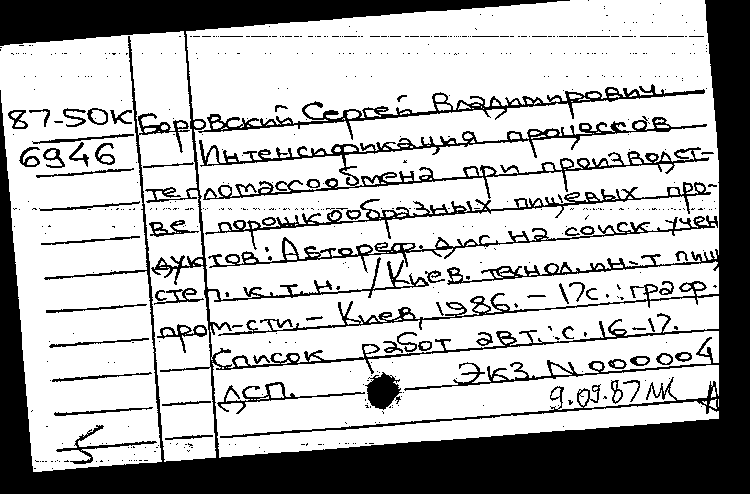 87-50К Боровский, Сергей Владимирович.
6946 Интенсификация процессов
тепломассообмена при производст-
ве порошкообразных пищевых про-
дуктов: Автореф. дис. на соиск. учен
степ. к.т.н. /Киев. технол. ин-т пищ
пром-сти. – Киев, 1986. – 17с.: граф.
Список работ авт.: с. 16-17.
ДСП. Экз. N 000004
9.09.87
5